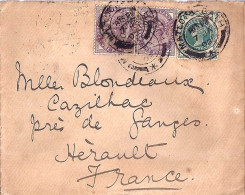 Mlle Blondeaux
Cazilhac
près de Ganges.
Hérault
France.